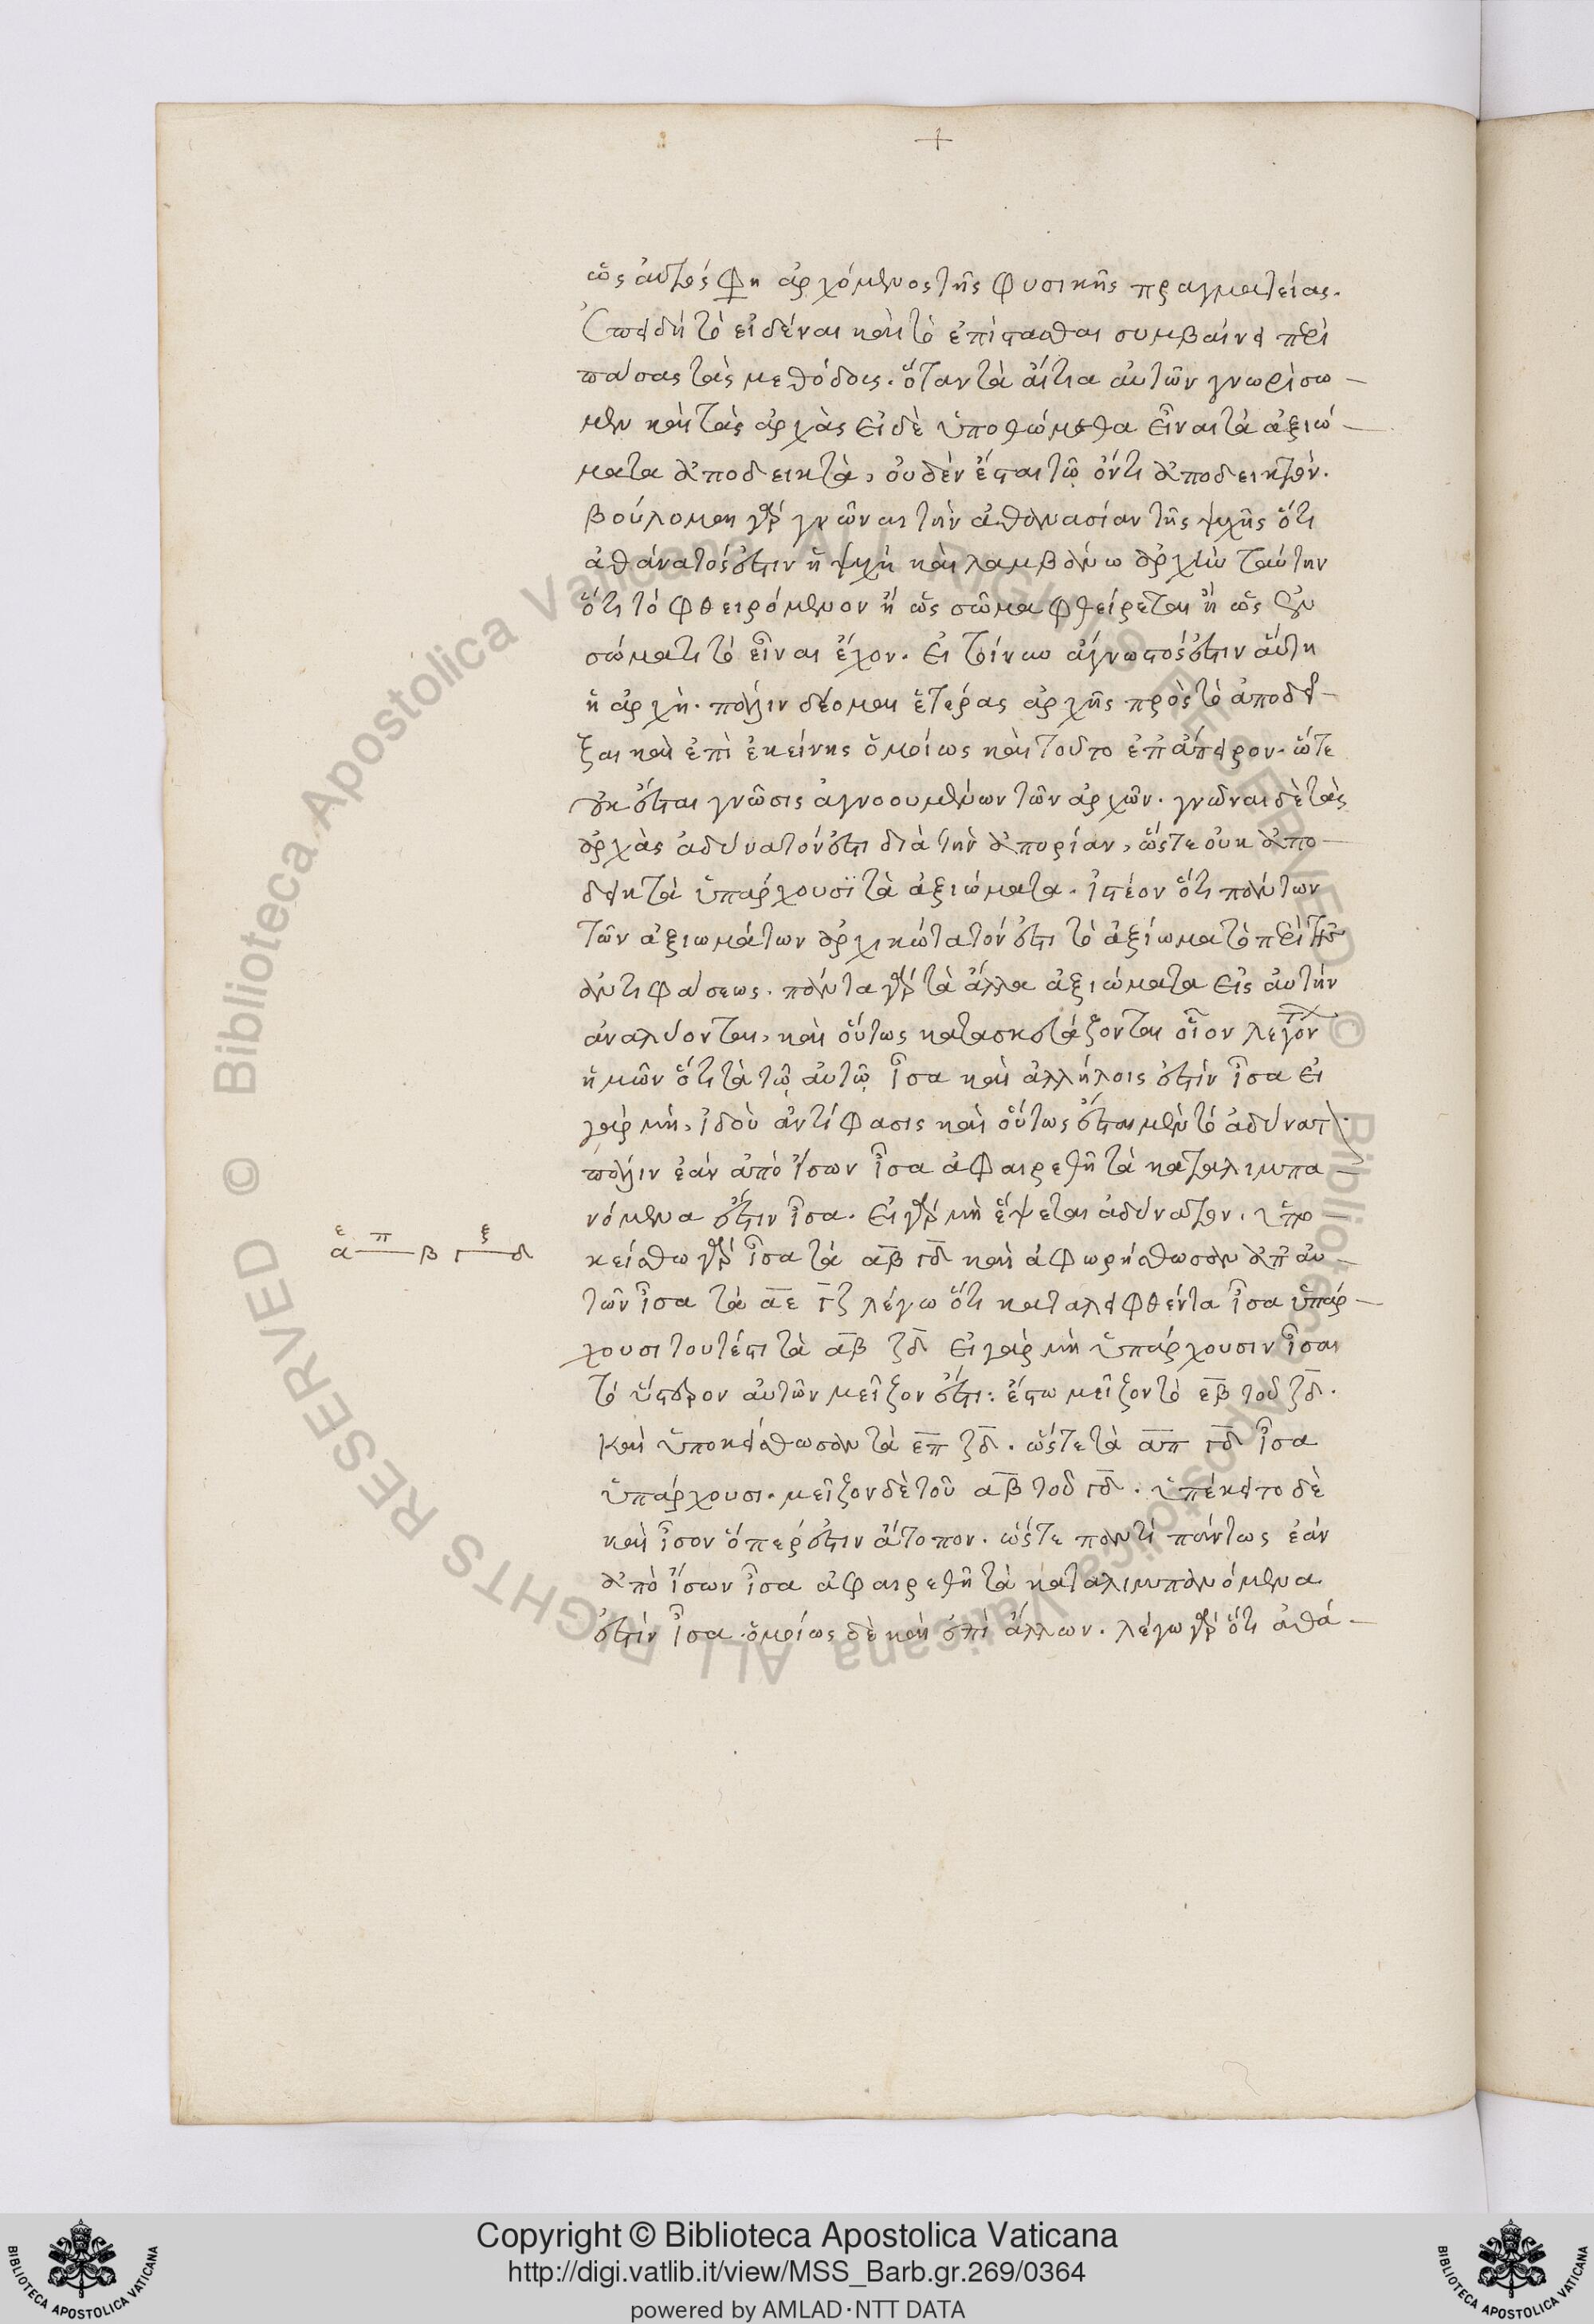 ὡς αὐτός φη ἀρχόμενος τῆς φυσικῆς πραγματείας.
Ἐπειδὴ τὸ εἰδέναι καὶ τὸ ἐπίστασθαι συμβαίνει περὶ
πάσας τὰς μεθόδους. ὅταν τὰ αἴτια αὐτῶν γνωρίσω-
μεν καὶ τὰς ἀρχὰς εἰ δὲ ὑποθώμεθα εἶναι τὰ ἀξιώ-
ματα ἀποδεικτὰ, οὐδὲν ἔσται τῷ ὄντι ἀποδεικτόν.
βούλομαι γὰρ γνῶναι τὴν ἀθανασίαν τῆς ψυχῆς ὅτι
ἀθάνατός ἐστιν ἡ ψυχή καὶ λαμβάνω ἀρχὴν ταύτην
ὅτι τὸ φθειρόμενον ἢ ὡς σῶμα φθείρεται ἢ ὡς ἐν
σώματι τὸ εἶναι ἔχον. εἰ τοίνυν ἄγνωστός ἐστιν αὕτη
ἡ ἀρχὴ. πάλιν δέομαι ἑτέρας ἀρχῆς πρὸς τὸ ἀποδεῖ-
ξαι καὶ ἐπὶ ἐκείνης ὁμοίως καὶ τοῦτο ἐπ' ἄπειρον. ὥστε
οὐκ ἔσται γνῶσις ἀγνοουμένων τῶν ἀρχῶν. γνῶναι δὲ τὰς
ἀρχὰς ἀδύνατόν ἐστι διὰ τὴν ἀπορίαν, ὥστε οὐκ ἀπο-
δεικτὰ ὑπάρχουσϊ τὰ ἀξιώματα. ἰστέον ὅτι πάντων
τῶν ἀξιωμάτων ἀρχικώτατόν ἐστι τὸ ἀξίωμα τὸ περὶ τῆς
ἀντιφάσεως. πάντα γὰρ τὰ ἄλλα ἀξιώματα εἰς αὐτὴν
ἀναλύονται, καὶ οὕτως κατασκευάζονται οἷον λεγόντων
ἡμῶν ὅτι τὰ τῷ αὐτῷ ἶσα καὶ ἀλλήλοις ἐστίν ἶσα εἰ
γάρ μή, ἰδοὺ ἀντίφασις καὶ οὕτως ἔσται μὲν τὸ ἀδύνατον.
πάλιν ἐάν ἀπὸ ἴσων ἶσα ἀφαιρεθῇ τὰ καταλιμπα-
νόμενα ἔστιν ἶσα. εἰ γὰρ μὴ ἕψεται ἀδύνατον. ὑπο
κείσθω γὰρ ἶσα τὰ αβ γδ καὶ ἀφωρήσθωσαν ἀπ' αὐ-
τῶν ἶσα τὰ αε γζ λέγω ὅτι καταλειφθέντα ἶσα ὑπάρ-
χουσι τουτέστι τὰ αβ ζδ εἰ γάρ μὴ ὑπάρχουσιν ἶσαι
τὸ ὕστερον αὐτῶν μεῖζον ἔστι: ἔστω μεῖζον τὸ εβ τοῦ ζδ.
Καὶ ὑποκείσθωσαν τὰ επ ζδ. ὥστε τὰ απ γδ ἶσα
ὑπάρχουσι. μεῖζον δὲ τοῦ αβ τοῦ γδ. ὑπέκειτο δὲ
καὶ ἶσον ὅπερ ἐστιν ἄτοπον. ὥστε παντί πάντως ἐάν
ἀπὸ ἴσων ἶσα ἀφαιρεθῇ τὰ καταλιμπανόμενα
ἐστίν ἶσα. ὁμοίως δὲ καὶ ἐπὶ ἄλλων. λέγω γὰρ ὅτι ἀθά-
ε π ξ
α β γ δ
Copyright © Biblioteca Apostolica Vaticana
http://digi.vatlib.it/view/MSS_Barb.gr.269/0364
powered by AMLAD·NTT DATA